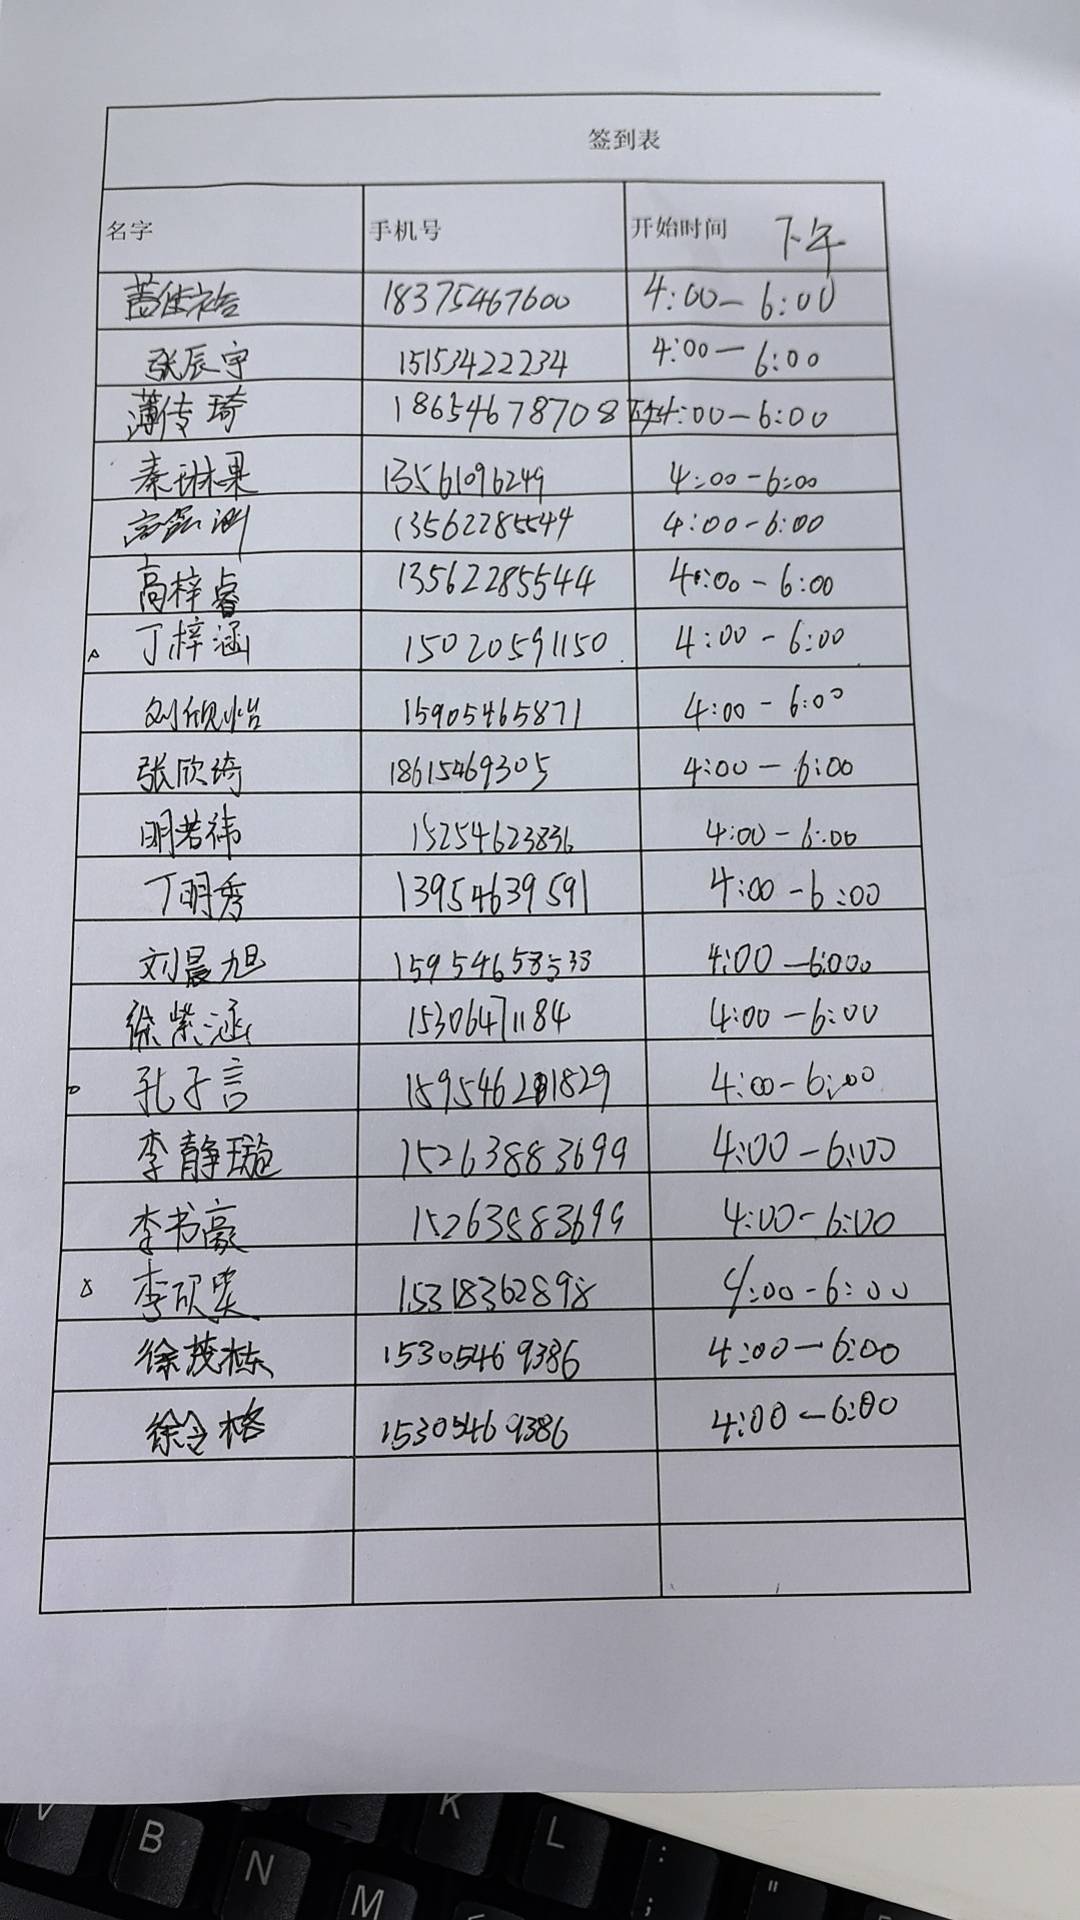 签到表
名字 手机号 开始时间 下午
18375467600 4:00-6:00
张辰宇 15153422234 4:00-6:00
薄传琦 18654678708 4:00-6:00
秦琳果 13561096249 4:00-6:00
13562285544 4:00-6:00
高梓睿 13562285544 4:00-6:00
丁梓涵 15020591150 4:00-6:00
刘欣怡 15905465871 4:00-6:00
张欣琦 18615469305 4:00-6:00
明若祎 15254623836 4:00-6:00
丁明秀 13954639591 4:00-6:00
刘晨旭 15954658538 4:00-6:000
徐紫涵 15306471184 4:00-6:00
孔子言 4:00-6:00
李静璇 15263883699 4:00-6:00
李书豪 15263883699 4:00-6:00
15318362898 4:00-6:00
徐茂栋 15305469386 4:00-6:00
徐令格 15305469386 4:00-6:00
V B N M K L : ; "